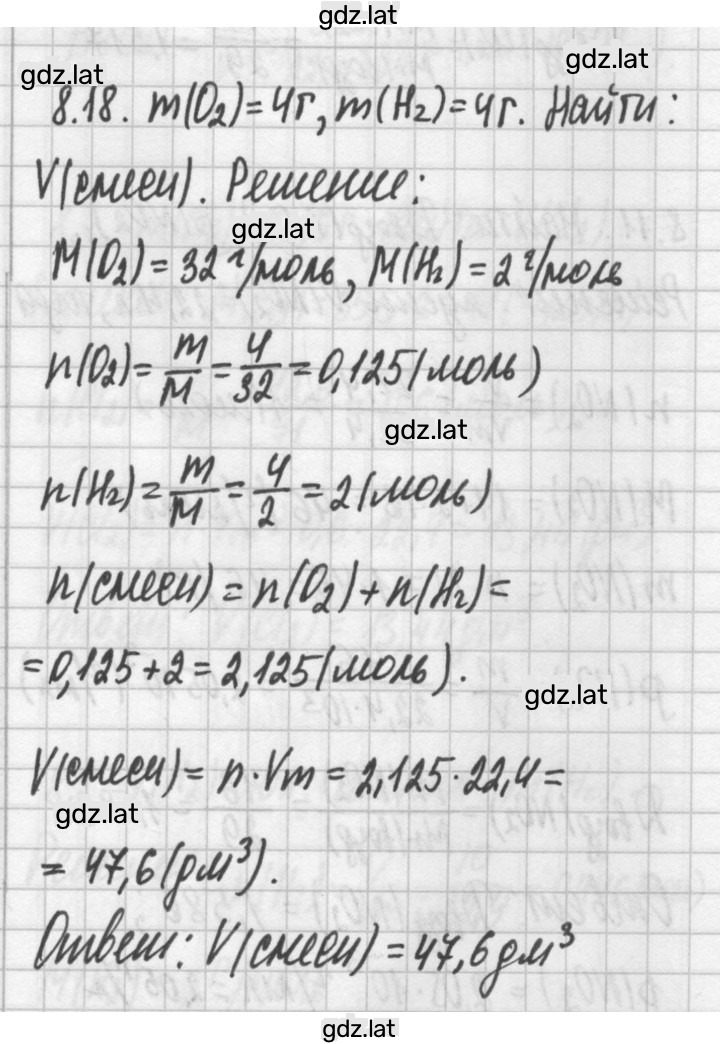 gdz.lat
gdz.lat
gdz.lat
8.18. m(O₂)=4г, m(H₂)=4г. Найти:
V(смеси). Решение:
gdz.lat
M(O₂)=32 г/моль, M(H₂)=2 г/моль
n(O₂)= m/M = 4/32 = 0,125(моль)
gdz.lat
n(H₂)= m/M = 4/2 = 2(моль)
n(смеси)=n(O₂)+n(H₂)=
=0,125+2=2,125(моль).
gdz.lat
V(смеси)= n·Vm = 2,125·22,4=
gdz.lat
= 47,6(дм³).
Ответ: V(смеси)=47,6дм³
gdz.lat